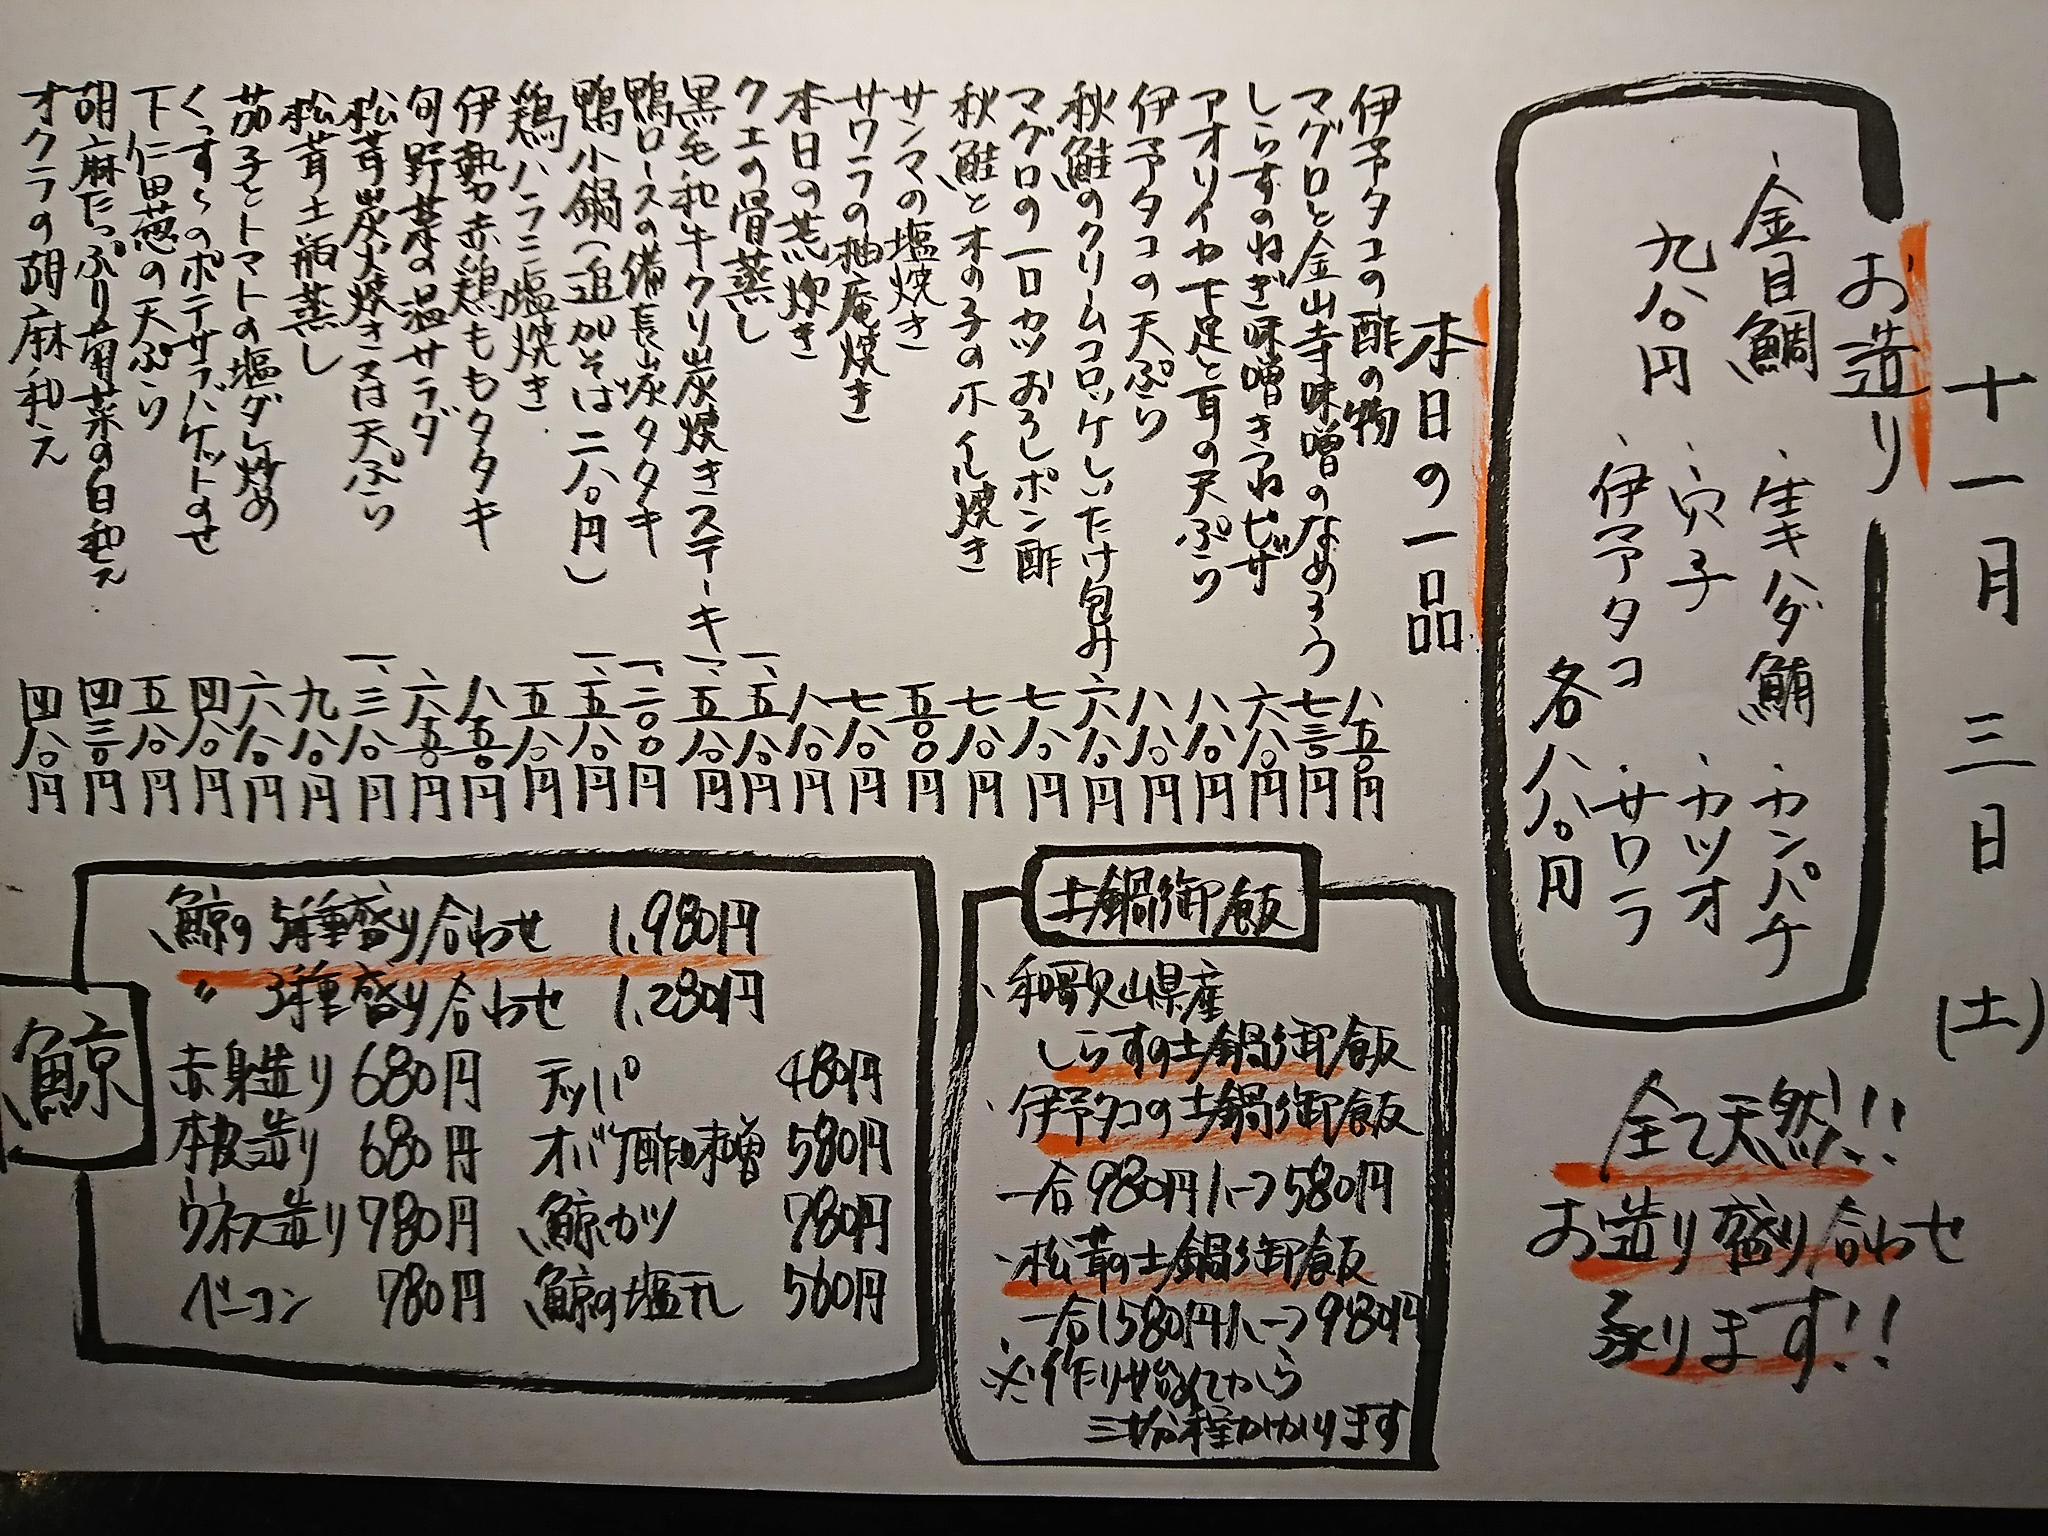 十一月三日(土)
お造り
・金目鯛
九八〇円
・生キハダ鮪
・カンパチ
・穴子
・カツオ
・伊予タコ
・サワラ
各八八〇円
全て天然!!
お造り盛り合わせ
承ります!!
本日の一品
伊予タコの酢の物 八五〇円
マグロと金山寺味噌のなめろう 七三〇円
しらすのねぎ味噌きつねピザ 六八〇円
アオリイカ下足と耳の天ぷら 八八〇円
伊予タコの天ぷら 八八〇円
秋鮭のクリームコロッケしいたけ包み 六八〇円
マグロの一口カツおろしポン酢 七八〇円
秋鮭とオの子のホイル焼き 七八〇円
サンマの塩焼き 五〇〇円
サワラの柚庵焼き 七八〇円
本日の荒炊き 八八〇円
クエの骨蒸し 一、五八〇円
黒毛和牛クリ炭焼きステーキ 一、五八〇円
鴨ロースの備長炭タタキ 一、二〇〇円
鴨小鍋(追加そば二八〇円) 一、五八〇円
鶏ハラミ塩焼き 五八〇円
伊勢赤鶏ももタタキ 八五〇円
旬野菜の温サラダ 六五〇円
松茸炭火焼き又は天ぷら 一、三八〇円
松茸土瓶蒸し 九八〇円
茄子とトマトの塩ダレ炒め 六八〇円
くずしのポテサラバケットのせ 四八〇円
下仁田葱の天ぷら 五八〇円
胡麻たっぷり菊菜の白和え 四三〇円
オクラの胡麻和え 四八〇円
土鍋御飯
・和歌山県産
しらすの土鍋御飯
・伊予タコの土鍋御飯
一合980円 ハーフ580円
・松茸の土鍋御飯
一合1580円 ハーフ980円
※作り始めてから
三十分程かかります
鯨
鯨の5種盛り合わせ 1,980円
〃 3種盛り合わせ 1,280円
赤身造り 680円 テッパ 480円
本皮造り 680円 オバケ酢味噌 580円
ウネス造り 780円 鯨カツ 780円
ベーコン 780円 鯨の塩干し 560円